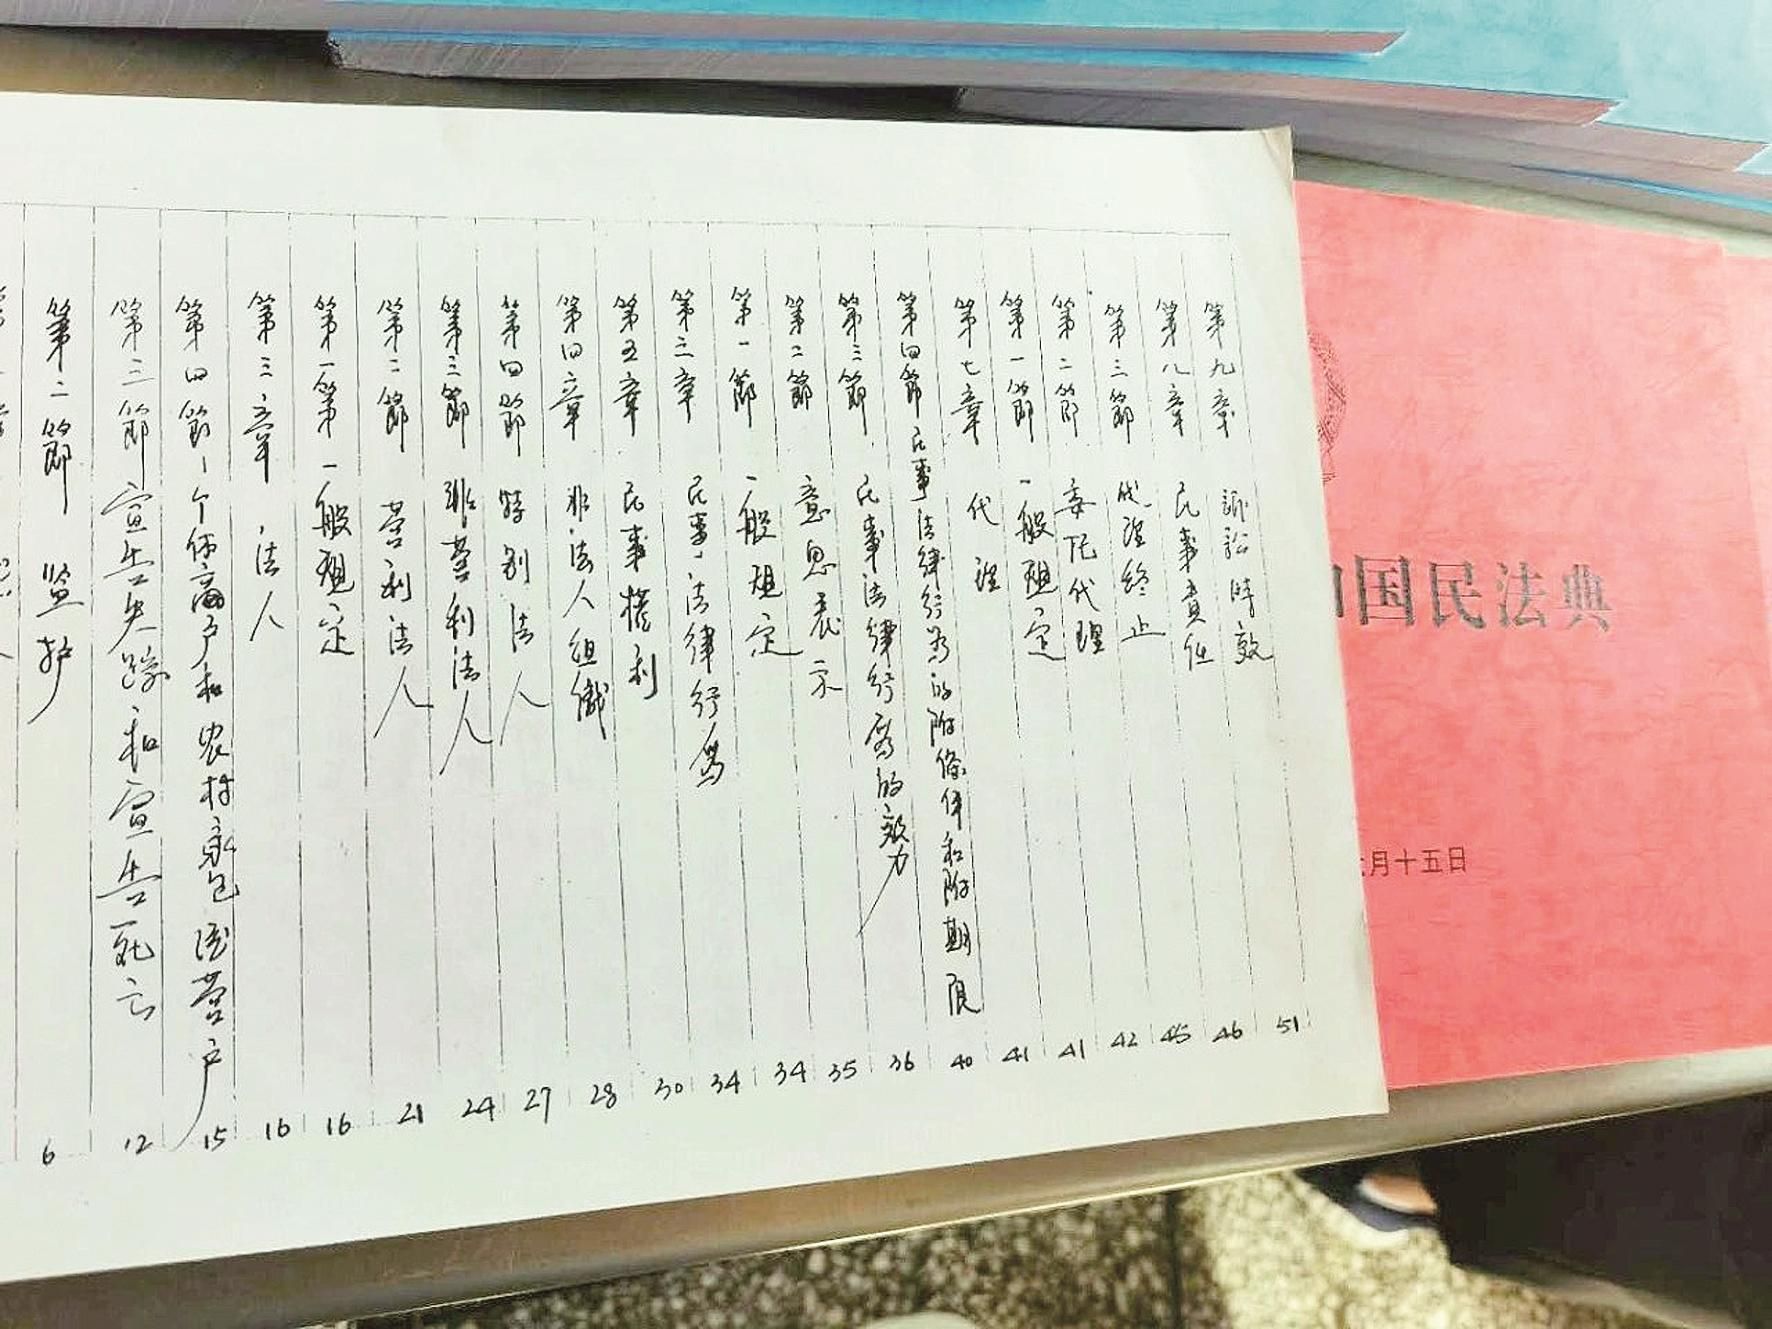 第二節 監护 6
第三節 宣告失踪和宣告死亡 12
第四節 个体商户和农村承包经营户 15
第三章 法人 16
第一節 一般规定 16
第二節 营利法人 21
第三節 非营利法人 24
第四節 特别法人 27
第四章 非法人组織 28
第五章 民事權利 30
第六章 民事法律行爲 34
第一節 一般规定 34
第二節 意思表示 35
第三節 民事法律行爲的效力 36
第四節 民事法律行为的附條件和附期限 40
第七章 代理 41
第一節 一般规定 41
第二節 委托代理 42
第三節 代理终止 45
第八章 民事責任 46
第九章 訴訟時效 51
和国民法典
月十五日